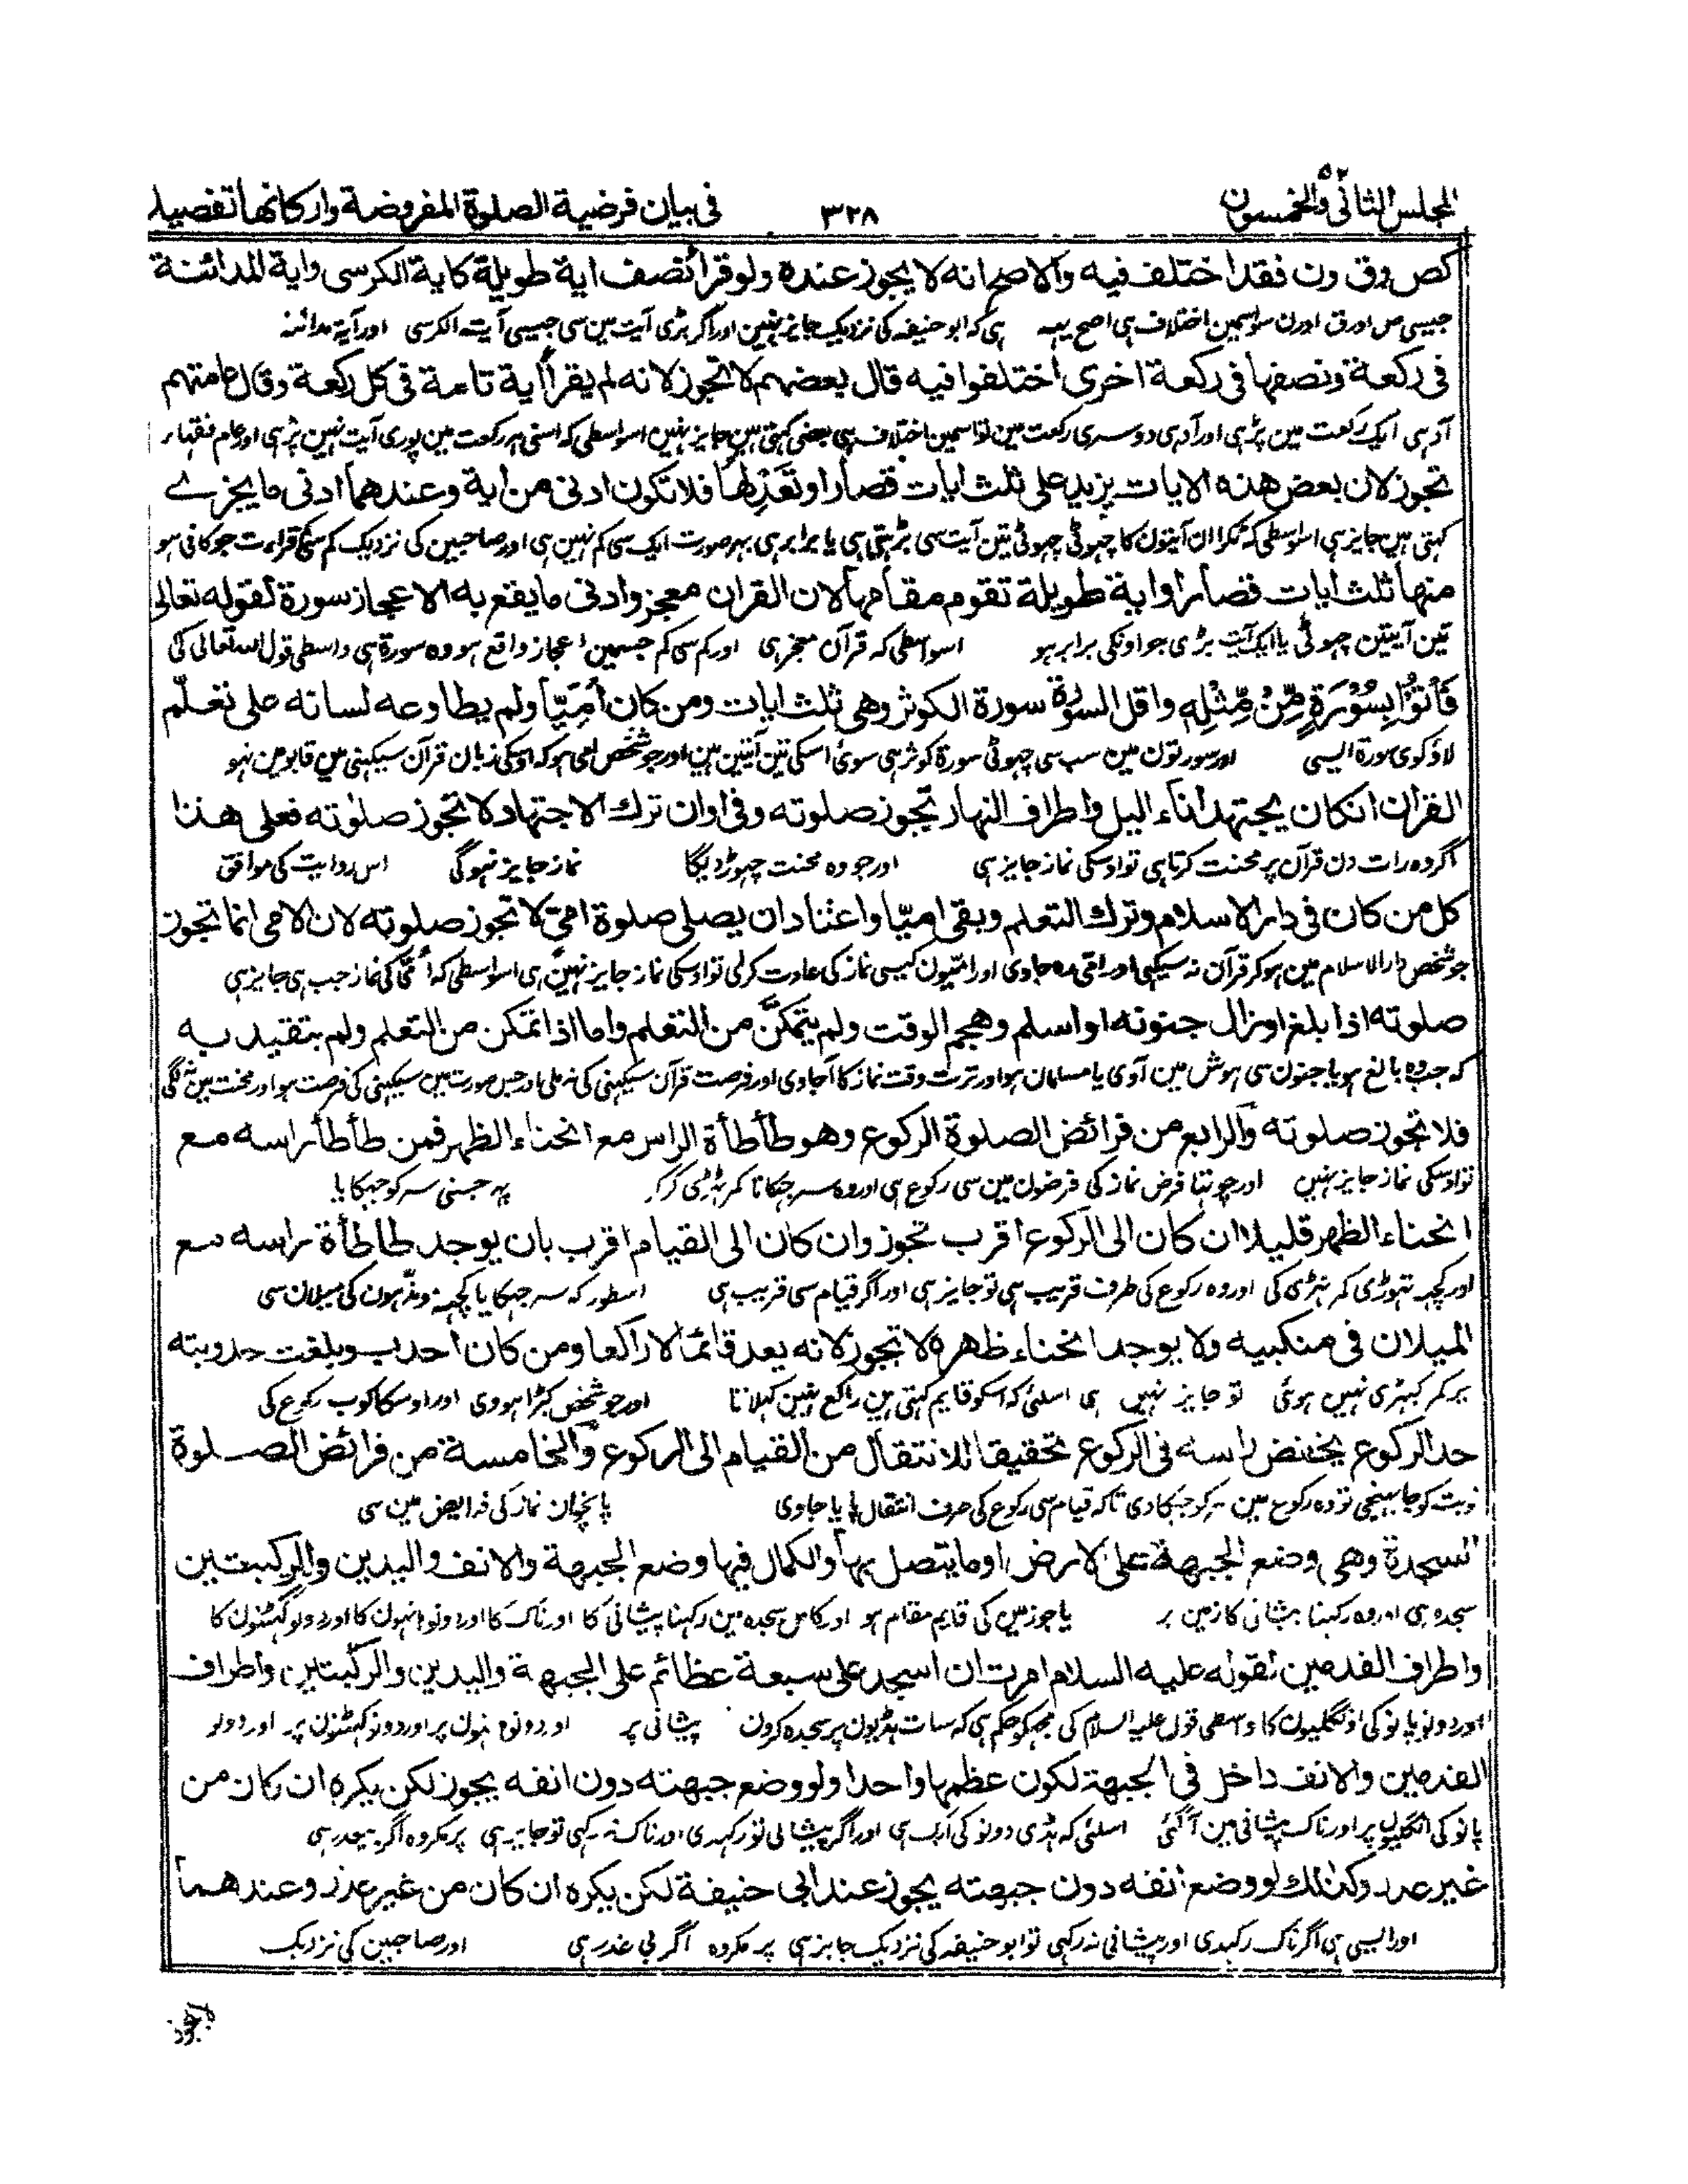 المجلس الثانی والخمسون ٥٢
٣٢٨
فی بیان فرضیة الصلوة المفروضة وارکانها تفصیلا
کص وق ون فقد اختلف فیه والاصح انه لا یجوز عنده ولو قرأ نصف ایة طویلة کایة الکرسی وایة المداینة
جیسی ص اور ق اور ن سو اسمین اختلاف ہی اصح یہہ ہی کہ ابو حنیفہ کی نزدیک جایز نہین اور اگر بڑی آیت مین سی جیسی آیت الکرسی اور آیة مداینہ
فی رکعة ونصفها فی رکعة اخری اختلفوا فیه قال بعضهم لا تجوز لانه لم یقرأ أیة تامة فی کل رکعة وقال عامتهم
آدہی ایک رکعت مین پڑہی اور آدہی دوسری رکعت مین تو اسمین اختلاف ہی بعضی کہتی ہین جایز نہین اسواسطی کہ اسنی ہر رکعت مین پوری آیت نہین پڑہی اور عام فقہاء
تجوز لان بعض هذه الایات یزید علی ثلث ایات قصار او تعدلها فلا تکون ادنی من ایة وعندهما ادنی ما یجزے
کہتی ہین جایز ہی اسواسطی کہ ٹکڑا ان آیتون کا چہوٹی چہوٹی تین آیت سی بڑہتی ہی یا برابر ہی بہر صورت ایک سی کم نہین ہی اور صاحبین کی نزدیک کم سی کم قراءت جو کافی ہو
منها ثلث ایات قصار او ایة طویلة تقوم مقامها لان القران معجز وادنی ما یقع به الاعجاز سورة لقوله تعالی
تین آیتین چہوٹی یا ایک آیت بڑی جو اونکی برابر ہو اسواسطی کہ قرآن معجز ہی اور کم سی کم جسمین اعجاز واقع ہو وہ سورة ہی واسطی قول اللہ تعالی کی
فَأْتُوْا بِسُوْرَةٍ مِّنْ مِّثْلِهٖ واقل السورة سورة الکوثر وهی ثلث ایات ومن کان أُمِّیًّا ولم یطاوعه لسانه علی تعلّم
لاؤ کوی سورة ایسی اور سورتون مین سب سی چہوٹی سورة کوثر ہی سوی اسکی تین آیتین ہین اور جو شخص امی ہو کہ اوسکی زبان قرآن سیکہنی مین قابو مین نہو
القران انکان یجتهد اناء الیل واطراف النهار تجوز صلوته وفی اوان ترک الاجتهاد لا تجوز صلوته فعلی هذا
اگر وہ رات دن قرآن پر محنت کرتا ہی تو اوسکی نماز جایز ہی اور جو وہ محنت چہوڑ دیگا نماز جایز نہوگی اس روایت کی موافق
کل من کان فی دار الاسلام وترک التعلم وبقی امیّا واعتاد ان یصلی صلوة امّی لا تجوز صلوته لان الامی انما تجوز
جو شخص دار الاسلام مین ہوکر قرآن نہ سیکہی اور امی رہ جاوی اور امیّون کیسی نماز کی عادت کرلی تو اوسکی نماز جایز نہین ہی اسواسطی کہ اُمّی کی نماز جب ہی جایز ہی
صلوته اذا بلغ او زال جنونه او اسلم وهجم الوقت ولم یتمکّن من التعلم واما اذا تمکن من التعلم ولم یتقید به
کہ جب وہ بالغ ہو یا جنون سی ہوش مین آوی یا مسلمان ہو اور ترت وقت نماز کا آجاوی اور فرصت قرآن سیکہنی کی نہ ملی اور جس صورت مین سیکہنی کی فرصت ہو اور محنت مین نہ لگی
فلا تجوز صلوته والرابع من فرائض الصلوة الرکوع وهو طأطأة الراس مع انحناء الظهر فمن طأطأ راسه مع
تو اوسکی نماز جایز نہین اور چوتہا فرض نماز کی فرضون مین سی رکوع ہی اور وہ سر جہکانا کمر ٹیڑہی کرکر پہر جسنی سر کو جہکایا
انحناء الظهر قلیلا ان کان الی الرکوع اقرب تجوز وان کان الی القیام اقرب بان یوجد طأطأة راسه مع
اور کچہہ تہوڑی کمر ٹیڑی کی اور وہ رکوع کی طرف قریب ہی تو جایز ہی اور اگر قیام سی قریب ہی اسطور کہ سر جہکایا کچہہ مونڈہون کی میلان سی
المیلان فی منکبیه ولا یوجد انحناء ظهره لا تجوز لانه یعد قائما لا راکعا ومن کان احدب وبلغت حدوبته
پر کمر ٹیڑی نہین ہوئی تو جایز نہین ہی اسلئی کہ اسکو قایم کہتی ہین راکع نہین کہلاتا اور جو شخص کبڑا ہووی اور اوسکا کوب رکوع کی
حد الرکوع یخفض راسه فی الرکوع تحقیقا للانتقال من القیام الی الرکوع والخامسة من فرائض الصلوة
نوبت کو جا پہنچی تو وہ رکوع مین سر کو جہکا دی تاکہ قیام سی رکوع کی طرف انتقال پایا جاوی پانچوان نماز کی فرایض مین سی
السجدة وهی وضع الجبهة علی الارض او ما یتصل بها والکمال فیها وضع الجبهة والانف والیدین والرکبتین
سجدہ ہی اور وہ رکہنا پیشانی کا زمین پر یا جو زمین کی قایم مقام ہو اور کامل سجدہ مین رکہنا پیشانی کا اور ناک کا اور دونو ہاتہون کا اور دونو گہٹنون کا
واطراف القدمین لقوله علیه السلام امرت ان اسجد علی سبعة عظائم علی الجبهة والیدین والرکبتین واطراف
اور دونو پانو کی اونگلیون کا واسطی قول علیہ السلام کی مجہکو حکم ہی کہ سات ہڈیون پر سجدہ کرون پیشانی پر اور دونو ہاتہون پر اور دونو گہٹنون پر اور دونو
القدمین والانف داخل فی الجبهة لکون عظمها واحدا ولو وضع جبهته دون انفه یجوز لکن یکره ان کان من
پانو کی انگلیون پر اور ناک پیشانی مین آگئی اسلئی کہ ہڈی دونو کی ایک ہی اور اگر پیشانی تو رکہدی اور ناک نہ رکہی تو جایز ہی پر مکروہ اگر بیعذر ہی
غیر عذر وکذلک لو وضع انفه دون جبهته یجوز عند ابی حنیفة لکن یکره ان کان من غیر عذر وعندهما
اور ایسی ہی اگر ناک رکہدی اور پیشانی نہ رکہی تو ابو حنیفہ کی نزدیک جایز ہی پر مکروہ اگر بی عذر ہی اور صاحبین کی نزدیک